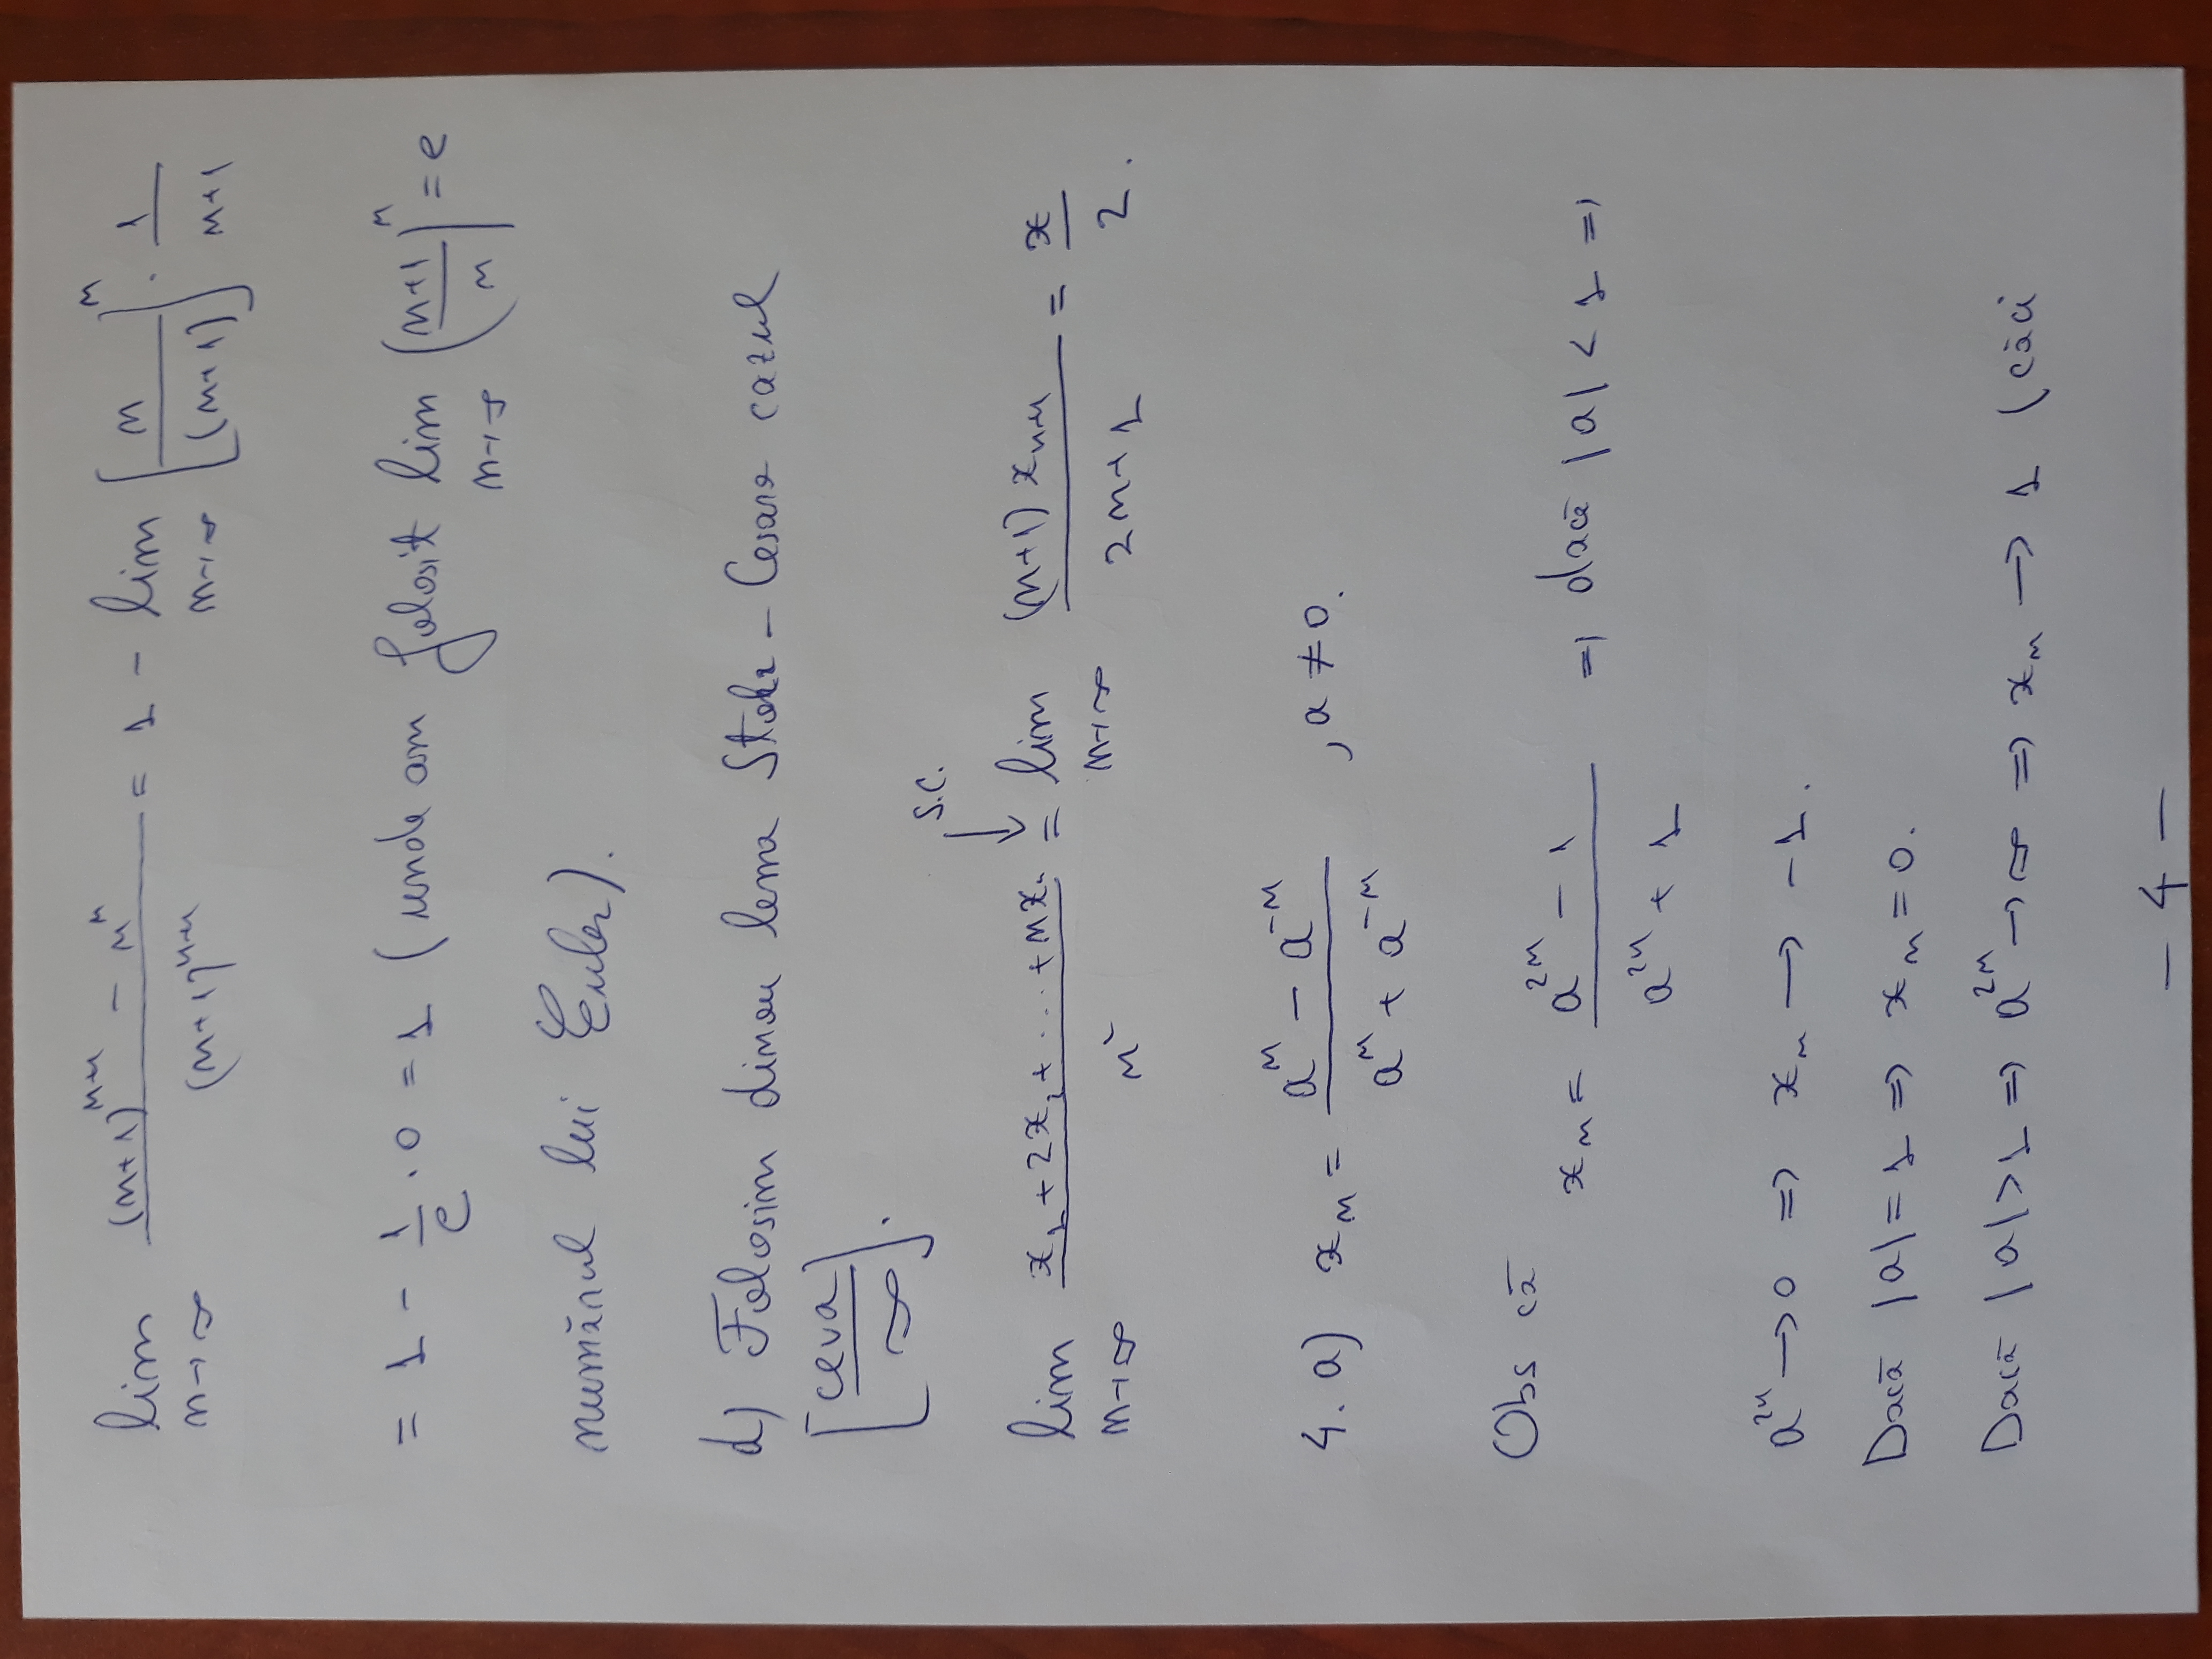 lim n→∞ ((n+1)^{n+1} − n^n) / (n+1)^{n+1} = 1 − lim n→∞ [n/(n+1)]^n · 1/(n+1)
= 1 − 1/e · 0 = 1 (unde am folosit lim n→∞ ((n+1)/n)^n = e
numărul lui Euler).
d) Folosim dinou lema Stolz – Cesaro cazul
[ceva/∞].
S.C.
↓
lim n→∞ (x_1 + 2x_2 + ... + nx_n) / n² = lim n→∞ ((n+1) x_{n+1}) / (2n+1) = x/2.
4. a) x_n = (a^n − a^{−n}) / (a^n + a^{−n}) , a ≠ 0.
Obs că
x_n = (a^{2n} − 1) / (a^{2n} + 1) ⇒ dacă |a| < 1 ⇒
a^{2n} → 0 ⇒ x_n → −1.
Dacă |a| = 1 ⇒ x_n = 0.
Dacă |a| > 1 ⇒ a^{2n} → ∞ ⇒ x_n → 1 (căci
– 4 –